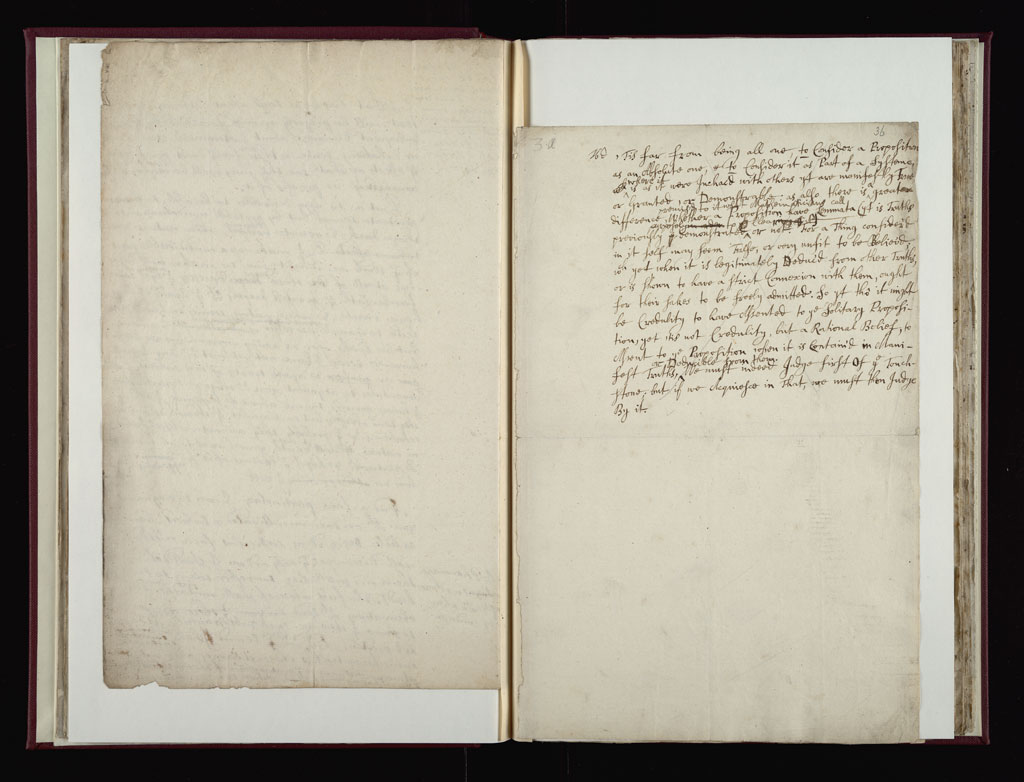 36
3d
'Tis far from being all one, to Consider a Proposition
as an Absolute one, & to Consider it as Part of a Systeme,
where it
is as it were Inchac'd with others yt are manifestly True
or Granted or Demonstrable: as also there is greate
difference Whether a Proposition have Lemmata (yt is Truths
previously demonstrated) or not. For a Thing consider'd
in it self may seem False, or very unfit to be Believed,
wch yet when it is legitimately Deduc'd from other Truths,
or is shown to have a strict Connexion with them, ought
for their sakes to be freely admitted. So yt tho it might
be Credulity to have Assented to ye Solitary Proposi-
tion, yet its not Credulity, but a Rational Belief, to
Assent to ye Proposition when it is Contained in Mani-
or Deducible from them
fest Truths, We must indeed Judge first Of ye Touch-
stone, but if we Acquiesce in That, we must then Judge
By it.